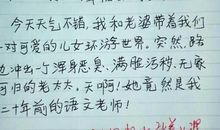 今天天气不错,我和老婆带着我们
一对可爱的儿女环游世界。突然,路
边冲出一个浑身恶臭、满脸污秽、无家
可归的老太太,天啊!她竟然是我
二十年前的语文老师!